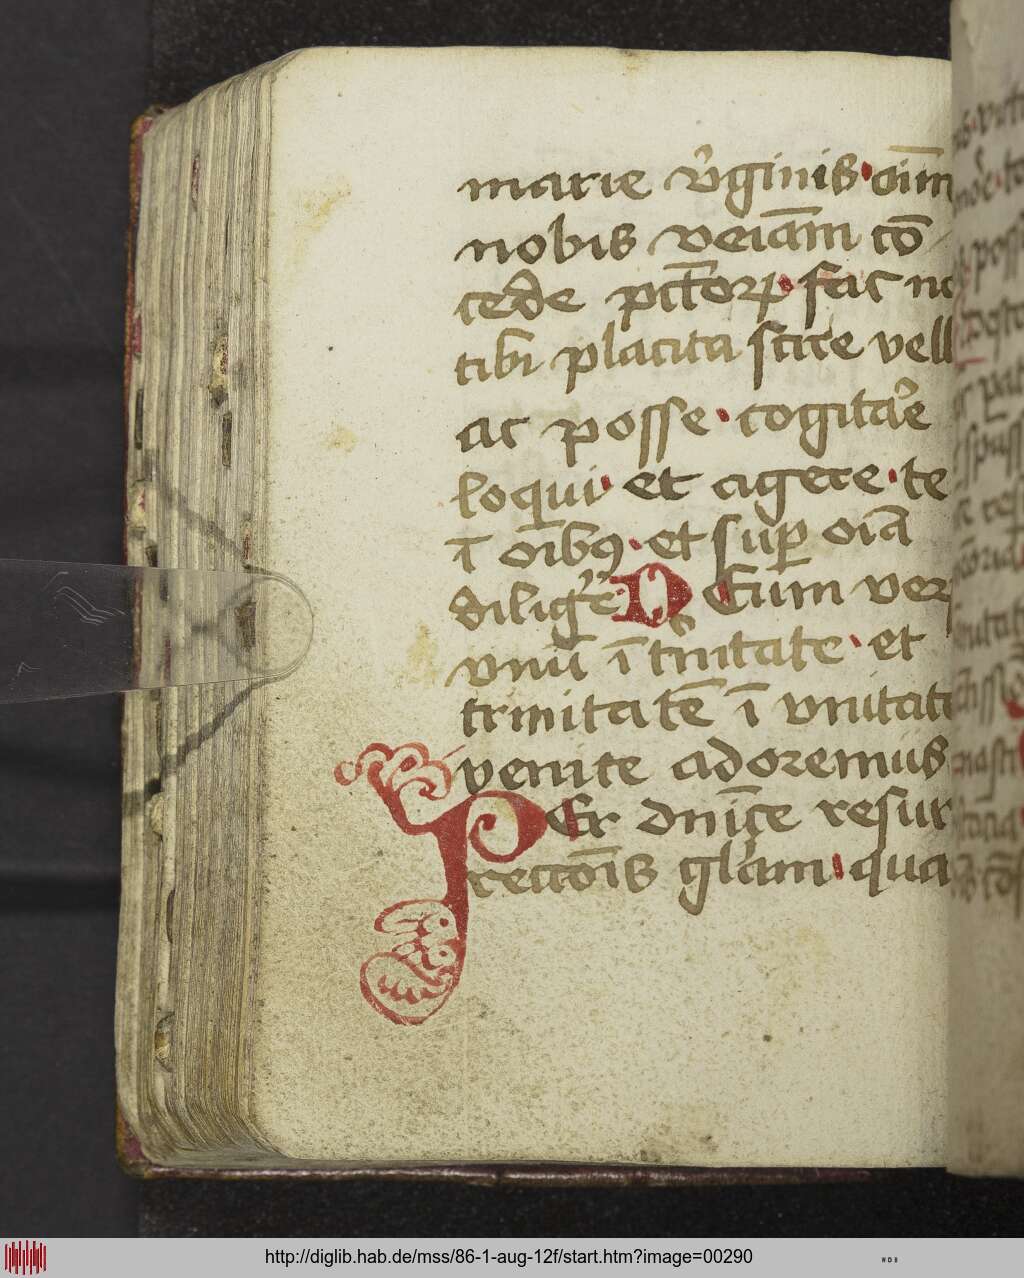 marie v̉ginis · oim
nobis veiãm cõ
cede pctõrꝝ · fac no
tibi placita scire vell
ac posse · cogitar̉e
loqui · et agere · te
ĩ oĩbꝰ · et sup̱ oiã
diligr̉e · D Eum ver
vnũ ĩ tͥnitate · et
trinitatẽ ĩ vnitate
venite adoremus
PEr dnĩce resur
rectõis glãm · qua
http://diglib.hab.de/mss/86-1-aug-12f/start.htm?image=00290